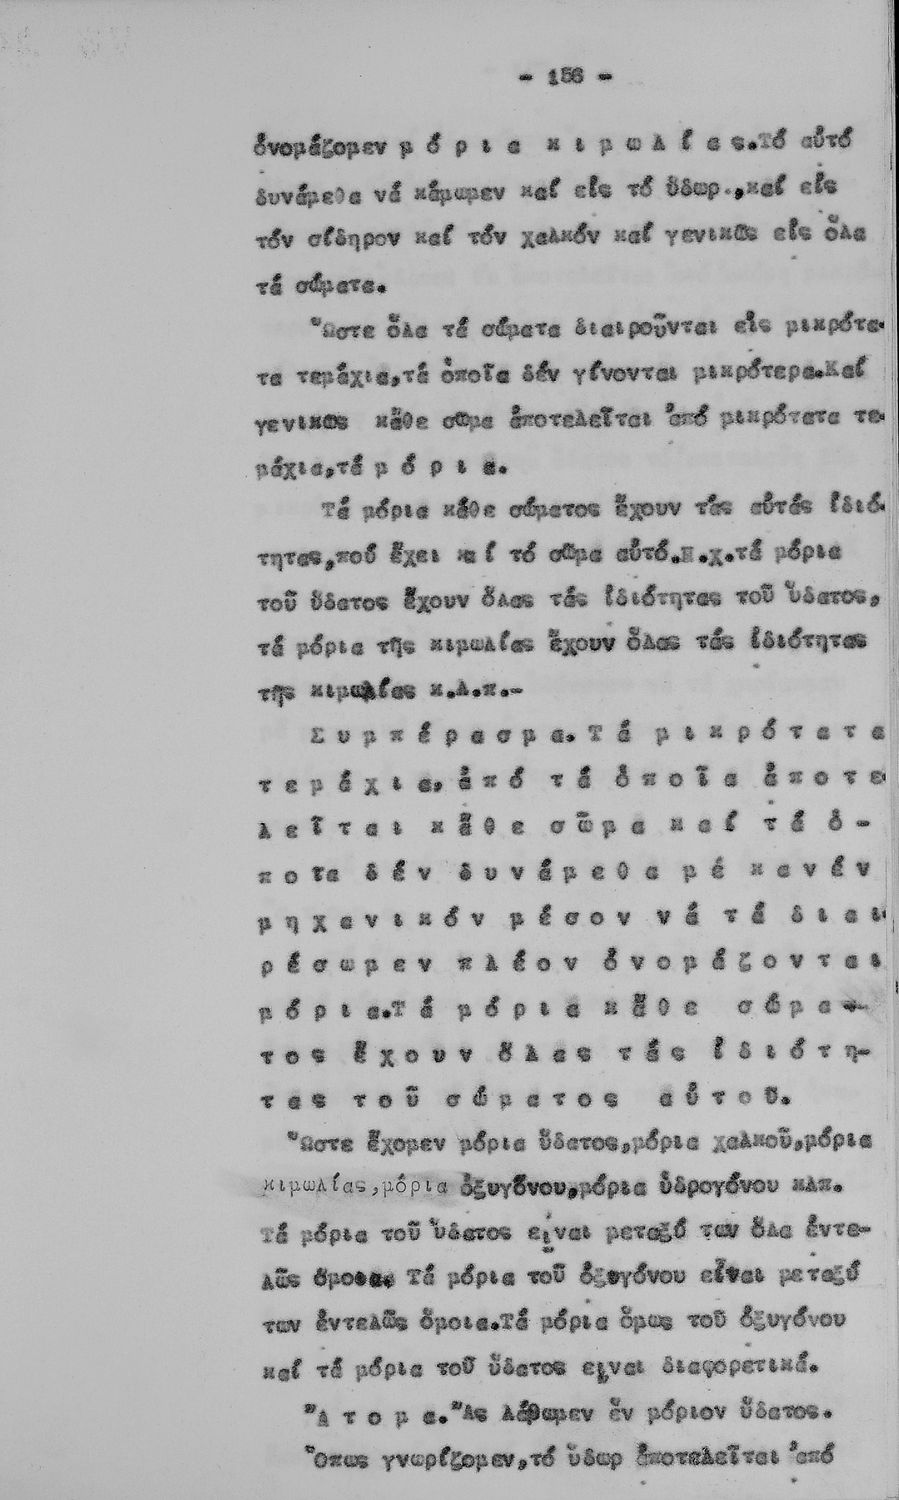 - 156 -
ὀνομάζομεν μ ό ρ ι α κ ι μ ω λ ί α ς.Τό αὐτό
δυνάμεθα νά κάμωμεν καί εἰς τό ὕδωρ.,καί εἰς
τόν σίδηρον καί τόν χαλκόν καί γενικῶς εἰς ὅλα
τά σώματα.
Ὥστε ὅλα τά σώματα διαιροῦνται εἰς μικρότα-
τα τεμάχια,τά ὁποῖα δέν γίνονται μικρότερα.Καί
γενικῶς κἄθε σῶμα ἀποτελεῖται ἀπό μικρότατα τε-
μάχια,τά μ ό ρ ι α.
Τά μόρια κάθε σώματος ἔχουν τάς αὐτάς ἰδιό-
τητας,πού ἔχει καί τό σῶμα αὐτό.Π.χ.τά μόρια
τοῦ ὕδατος ἔχουν ὅλας τάς ἰδιότητας τοῦ ὕδατος,
τά μόρια τῆς κιμωλίας ἔχουν ὅλας τάς ἰδιότητας
τῆς κιμωλίας κ.λ.π.-
Σ υ μ π έ ρ α σ μ α. Τ ά μ ι κ ρ ό τ α τ α
τ ε μ ά χ ι α, ἀ π ό τ ά ὁ π ο ῖ α ἀ π ο τ ε-
λ ε ῖ τ α ι κ ἄ θ ε σ ῶ μ α κ α ί τ ά ὁ -
π ο ῖ α δ έ ν δ υ ν ά μ ε θ α μ έ κ α ν έ ν
μ η χ α ν ι κ ό ν μ έ σ ο ν ν ά τ ά δ ι α ι-
ρ έ σ ω μ ε ν π λ έ ο ν ὀ ν ο μ ά ζ ο ν τ α ι
μ ό ρ ι α.Τ ά μ ό ρ ι α κ ἄ θ ε σ ώ μ α -
τ ο ς ἔ χ ο υ ν ὅ λ α ς τ ά ς ἰ δ ι ό τ η-
τ α ς τ ο ῦ σ ώ μ α τ ο ς α ὐ τ ο ῦ.
Ὥστε ἔχομεν μόρια ὕδατος,μόρια χαλκοῦ,μόρια
κιμωλίας,μόρια ὀξυγόνου,μόρια ὑδρογόνου κλπ.
Τά μόρια τοῦ ὕδατος εἶναι μεταξύ των ὅλα ἐντε-
λῶς ὅμοια. Τά μόρια τοῦ ὀξυγόνου εἶναι μεταξύ
των ἐντελῶς ὅμοια.Τά μόρια ὅμως τοῦ ὀξυγόνου
καί τά μόρια τοῦ ὕδατος εἶναι διαφορετικά.
Ἄ τ ο μ α.Ἄς λάβωμεν ἕν μόριον ὕδατος.
Ὅπως γνωρίζομεν,τό ὕδωρ ἀποτελεῖται ἀπό